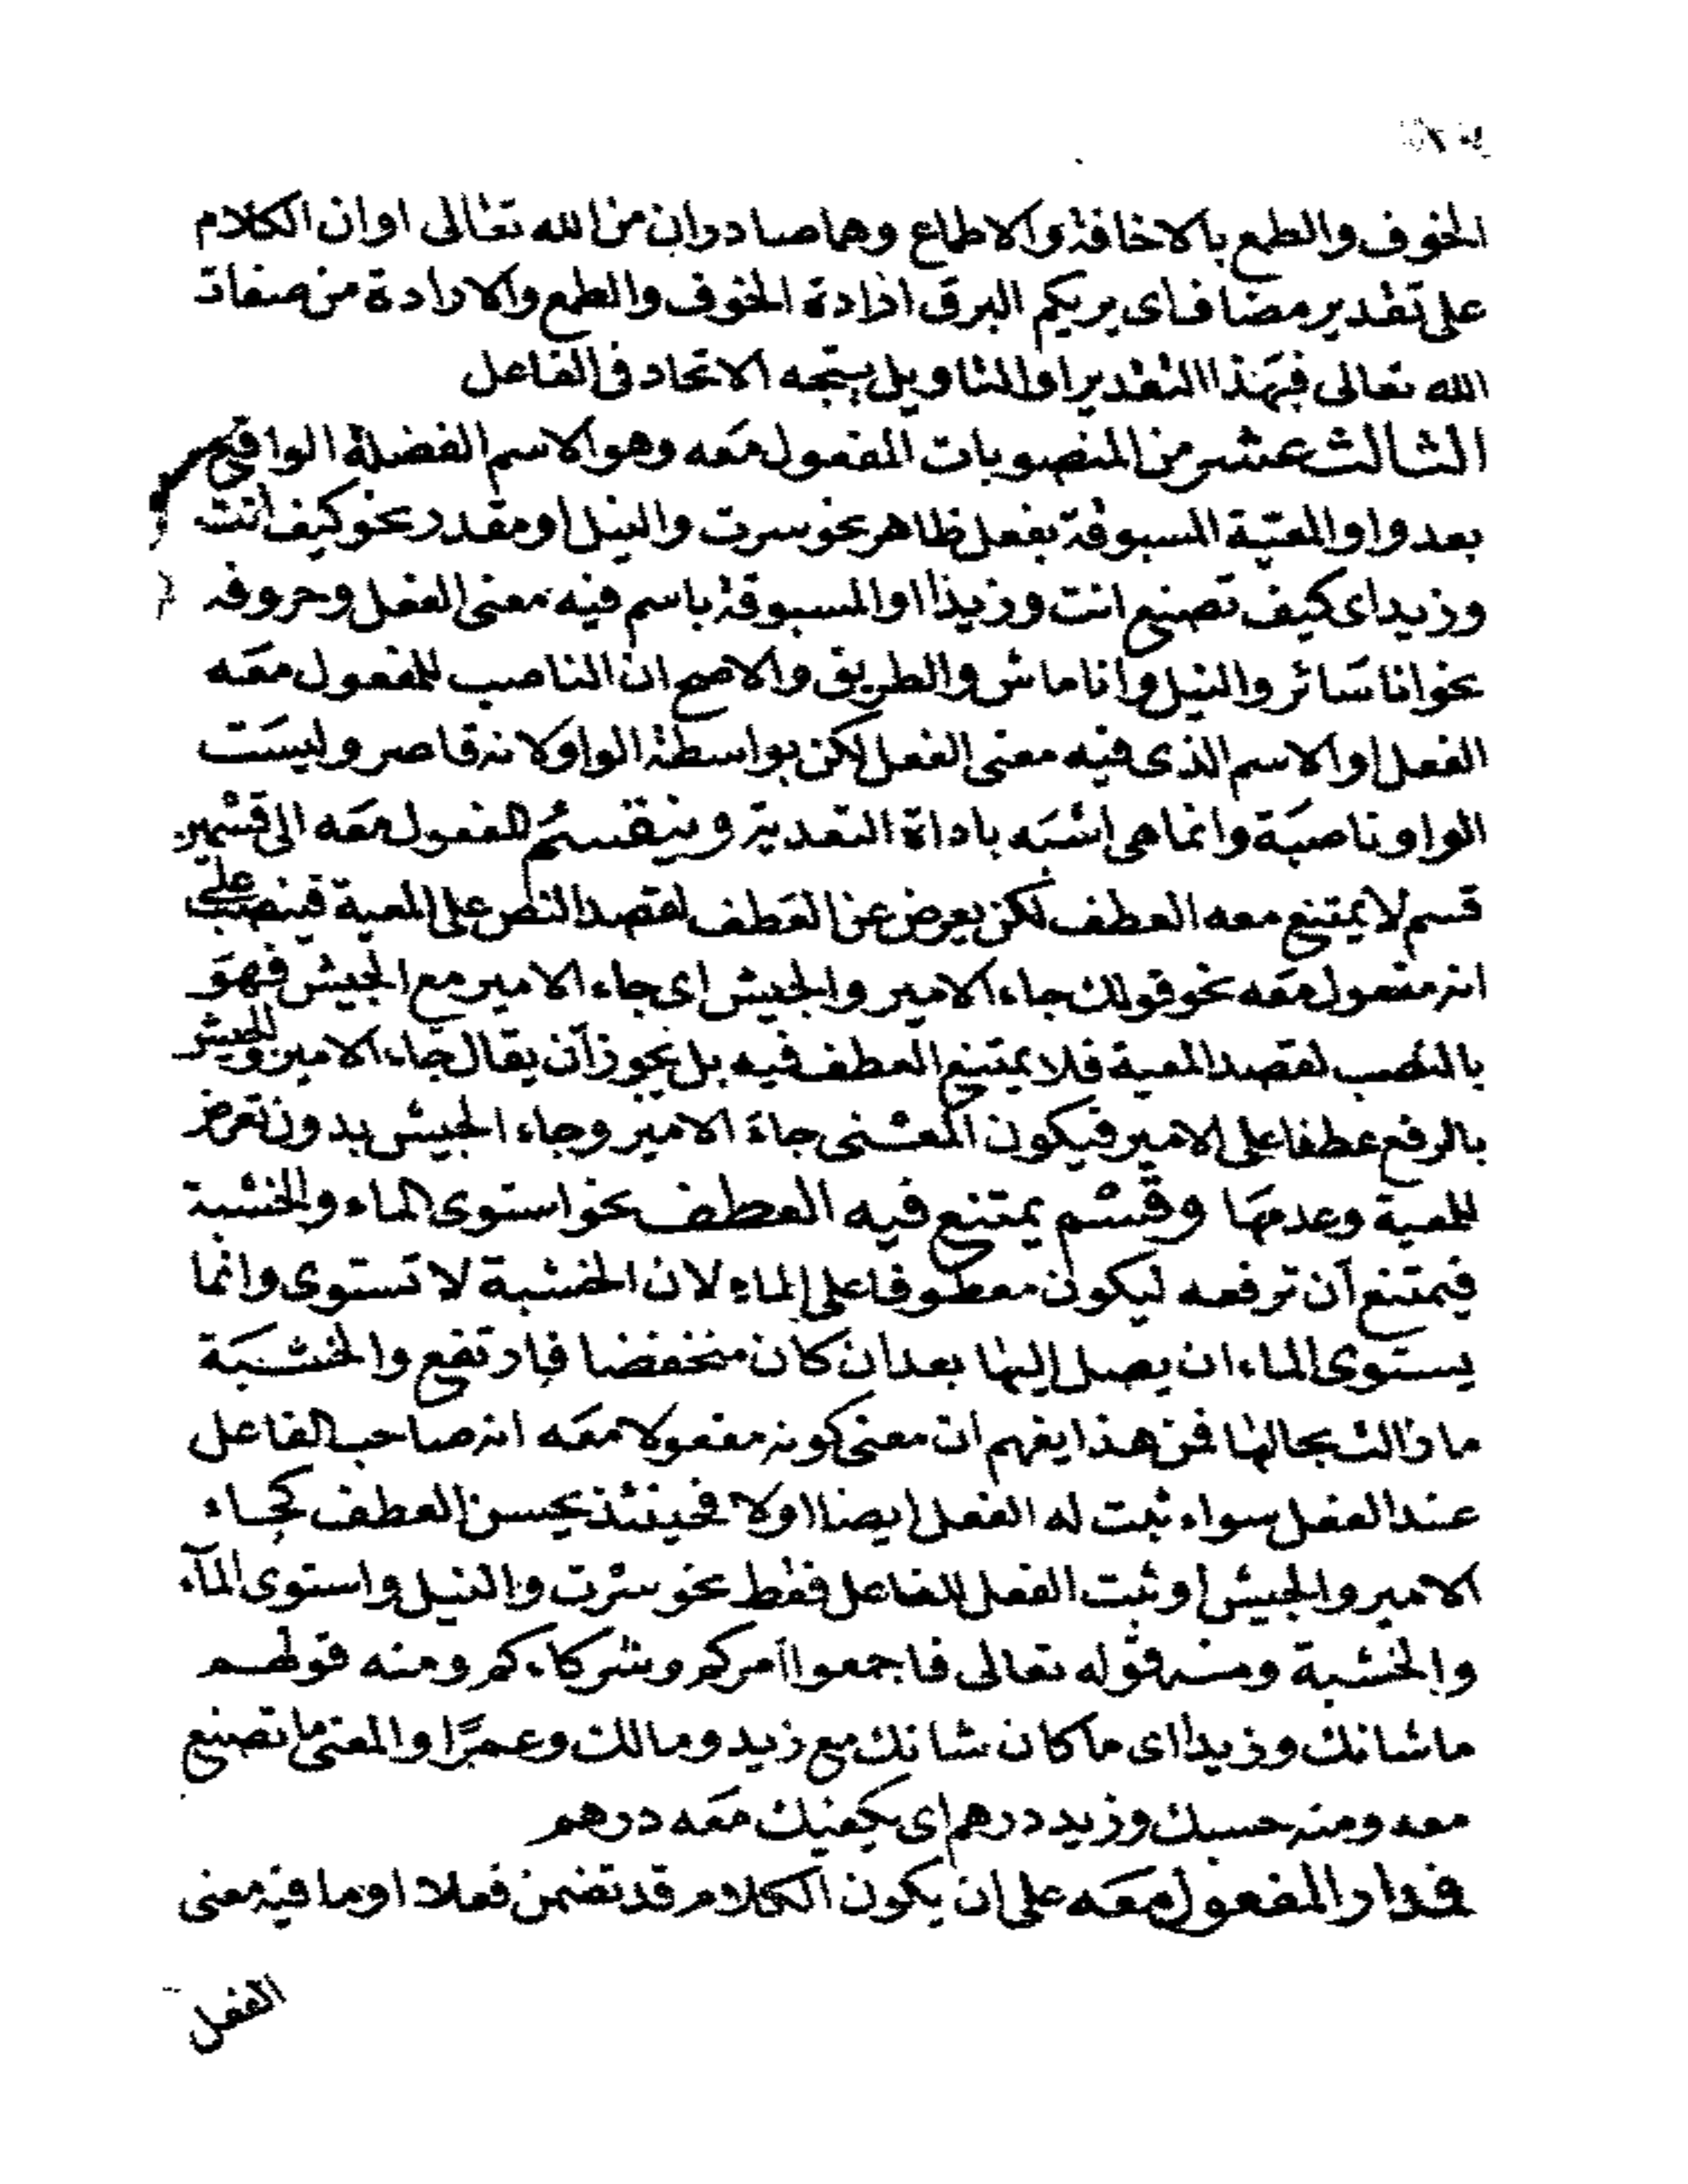 الخوف والطمع بالاخافة والاطماع وهما صادران من الله تعالى او ان الكلام
على تقدير مضاف اى يريكم البرق ارادة الخوف والطمع والارادة من صفات
الله تعالى فبهذا التقدير او التاويل يتجه الاتحاد فى الفاعل
الثالث عشر من المنصوبات المفعول معه وهو الاسم الفضلة الواقع
بعد واو المعية المسبوقة بفعل ظاهر نحو سرت والنيل او مقدر نحو كيف انت
وزيدا اى كيف تصنع انت وزيدا او المسبوقة باسم فيه معنى الفعل وحروفه
نحو انا سائر والنيل وانا ماش والطريق والاصح ان الناصب للمفعول معه
الفعل او الاسم الذى فيه معنى الفعل لكن بواسطة الواو لانه قاصر وليست
الواو ناصبة وانما هى اشبه باداة التعدية وينقسم المفعول معه الى قسمين
قسم لا يمتنع معه العطف لكن يعرض عن العطف لقصد النص على المعية فينصب على
انه مفعول معه نحو قولك جاء الامير والجيش اى جاء الامير مع الجيش فهو
بالنصب لقصد المعية فلا يمتنع العطف فيه بل يجوز أن يقال جاء الامير والجيش
بالرفع عطفا على الامير فيكون المعنى جاء الامير وجاء الجيش بدون تعرض
للمعية وعدمها وقسم يمتنع فيه العطف نحو استوى الماء والخشبة
فيمتنع أن ترفعه ليكون معطوفا على الماء لان الخشبة لا تستوى وانما
يستوى الماء ان يصل اليها بعد ان كان منخفضا فارتفع والخشبة
ما زالت بحالها فمن هذا يفهم ان معنى كونه مفعولا معه انه صاحب الفاعل
عند الفعل سواء ثبت له الفعل ايضا اولا فحينئذ يحسن العطف كجاء
الامير والجيش او ثبت الفعل للفاعل فقط نحو سرت والنيل واستوى المآء
والخشبة ومنه قوله تعالى فاجمعوا أمركم وشركاءكم ومنه قولهم
ما شانك وزيدا اى ما كان شانك مع زيد ومالك وعمرًا والمعنى ما تصنع
معه ومنه حسبك وزيد درهم اى يكفيك معه درهم
فمدار المفعول معه على ان يكون الكلام قد تضمن فعلا او ما فيه معنى
الفعل